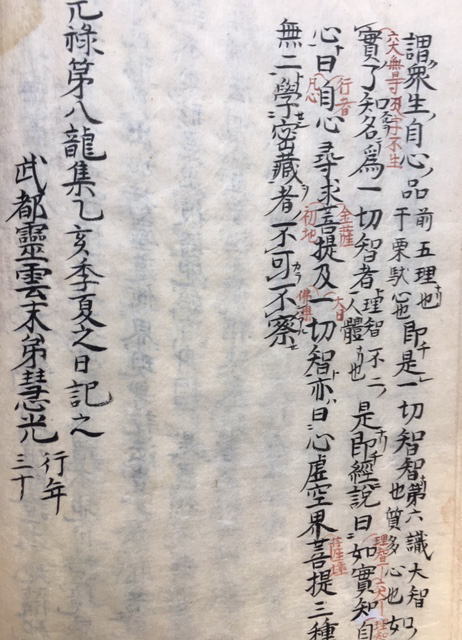 謂衆生自心品前五理也干栗駄心也即是一切智智第六識大智也質多心也如
實了知名爲一切智者理智不二人體也是即經說曰如實知自
心曰自心尋求菩提及一切智亦曰心虛空界菩提三種
無二學密藏者不可不察
元祿第八龍集乙亥季夏之日記之
武都靈雲末弟慧光行年三十
行者
凡心
金薩
初地
大日